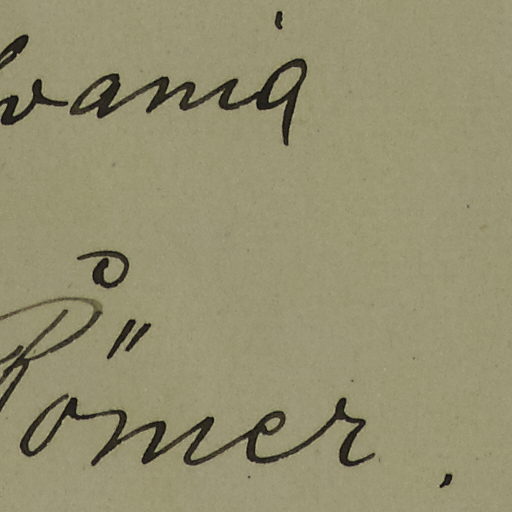 vania
Römer.